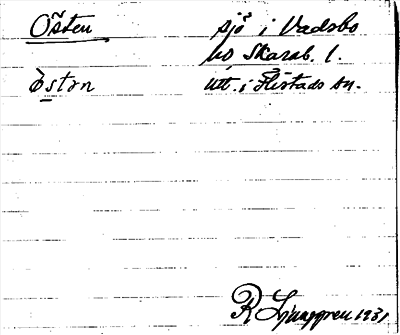 Östen sjö i Vadsbo
hd Skarab. l.
Estn utt. i Flistads sn.
R Ljunggren 1931